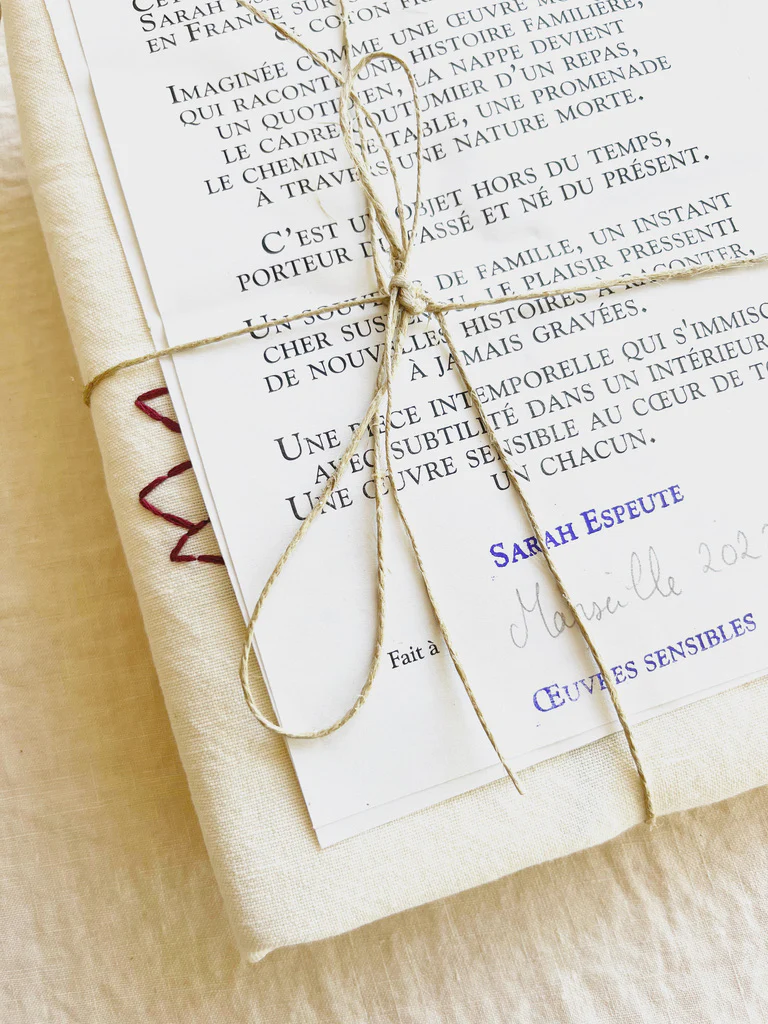 Sarah
en France sur
& coton
Imaginée comme une œuvre
qui raconte une histoire familière,
un quotidien, la nappe devient
le cadre coutumier d'un repas,
le chemin de table, une promenade
à travers une nature morte.
C'est un objet hors du temps,
porteur du passé et né du présent.
Un souvenir de famille, un instant
cher suspendu, le plaisir pressenti
de nouvelles histoires à raconter,
à jamais gravées.
Une pièce intemporelle qui s'immisc
avec subtilité dans un intérieur
Une œuvre sensible au cœur de
un chacun.
Sarah Espeute
Marseille 202
Fait à
Œuvres sensibles